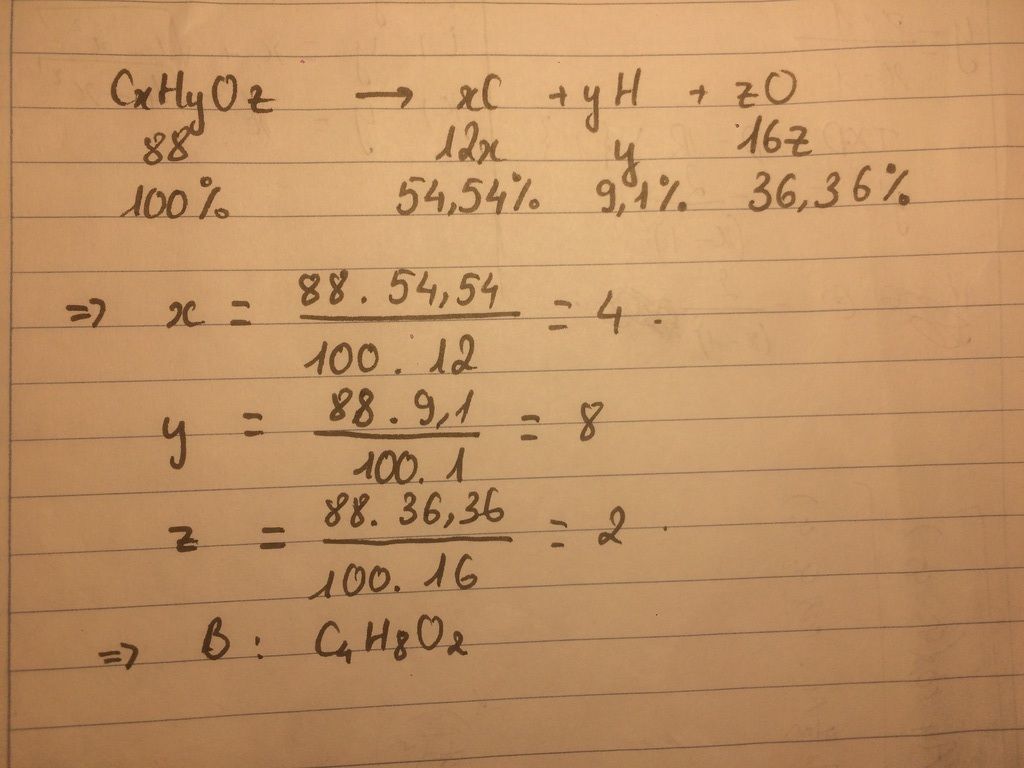 CxHyOz → xC + yH + zO
88 12x y 16z
100% 54,54% 9,1% 36,36%
=> x = 88 . 54,54 / 100 . 12 = 4 .
y = 88 . 9,1 / 100 . 1 = 8
z = 88 . 36,36 / 100 . 16 = 2 .
=> B : C4H8O2